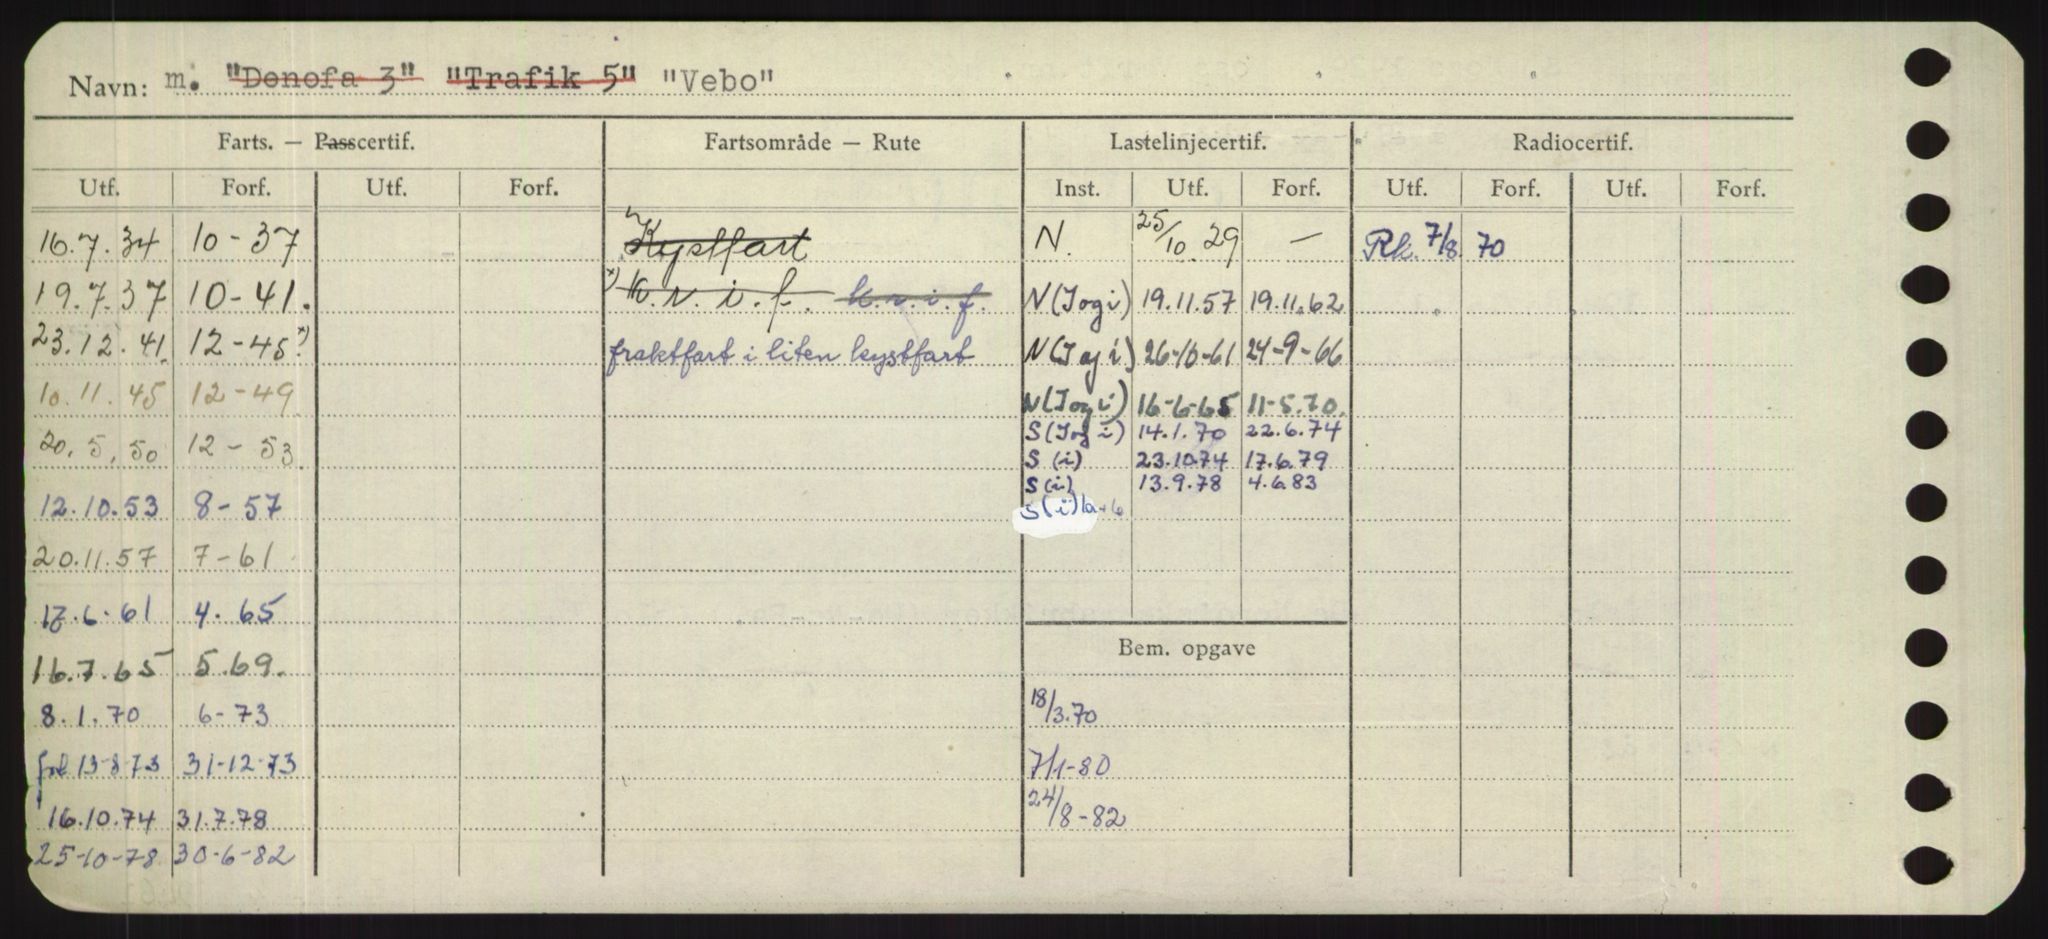 Navn: m. "Denofa 3" "Trafik 5" "Vebo"
Farts. — Passcertif. Fartsområde — Rute Lastelinjecertif. Radiocertif.
Utf. Forf. Utf. Forf. Inst. Utf. Forf. Utf. Forf. Utf. Forf.
16.7.34 10-37 Kystfart N. 25/10.29 — Rk. 7/8. 70
19.7.37 10-41. x) k.v.i.f. k.v.i.f. N(Iogi) 19.11.57 19.11.62
23.12.41. 12-45. x) fraktfart i liten kystfart N(Iogi) 26-10-61 24-9-66
10.11.45 12-49 N(Iogi) 16-6-65 11-5.70.
20.5.50 12-53. S(Iogi) 14.1.70 22.6.74
S(i) 23.10.74 17.6.79
12.10.53 8-57 S(i) 13.9.78 4.6.83
S(i)
20.11.57 7-61
17.6.61 4.65
Bem. opgave
16.7.65 5.69.
8.1.70 6-73 18/3.70
13-8-73 31-12-73 7/1-80
16.10.74 31.7.78 24/8-82
25-10-78 30-6-82